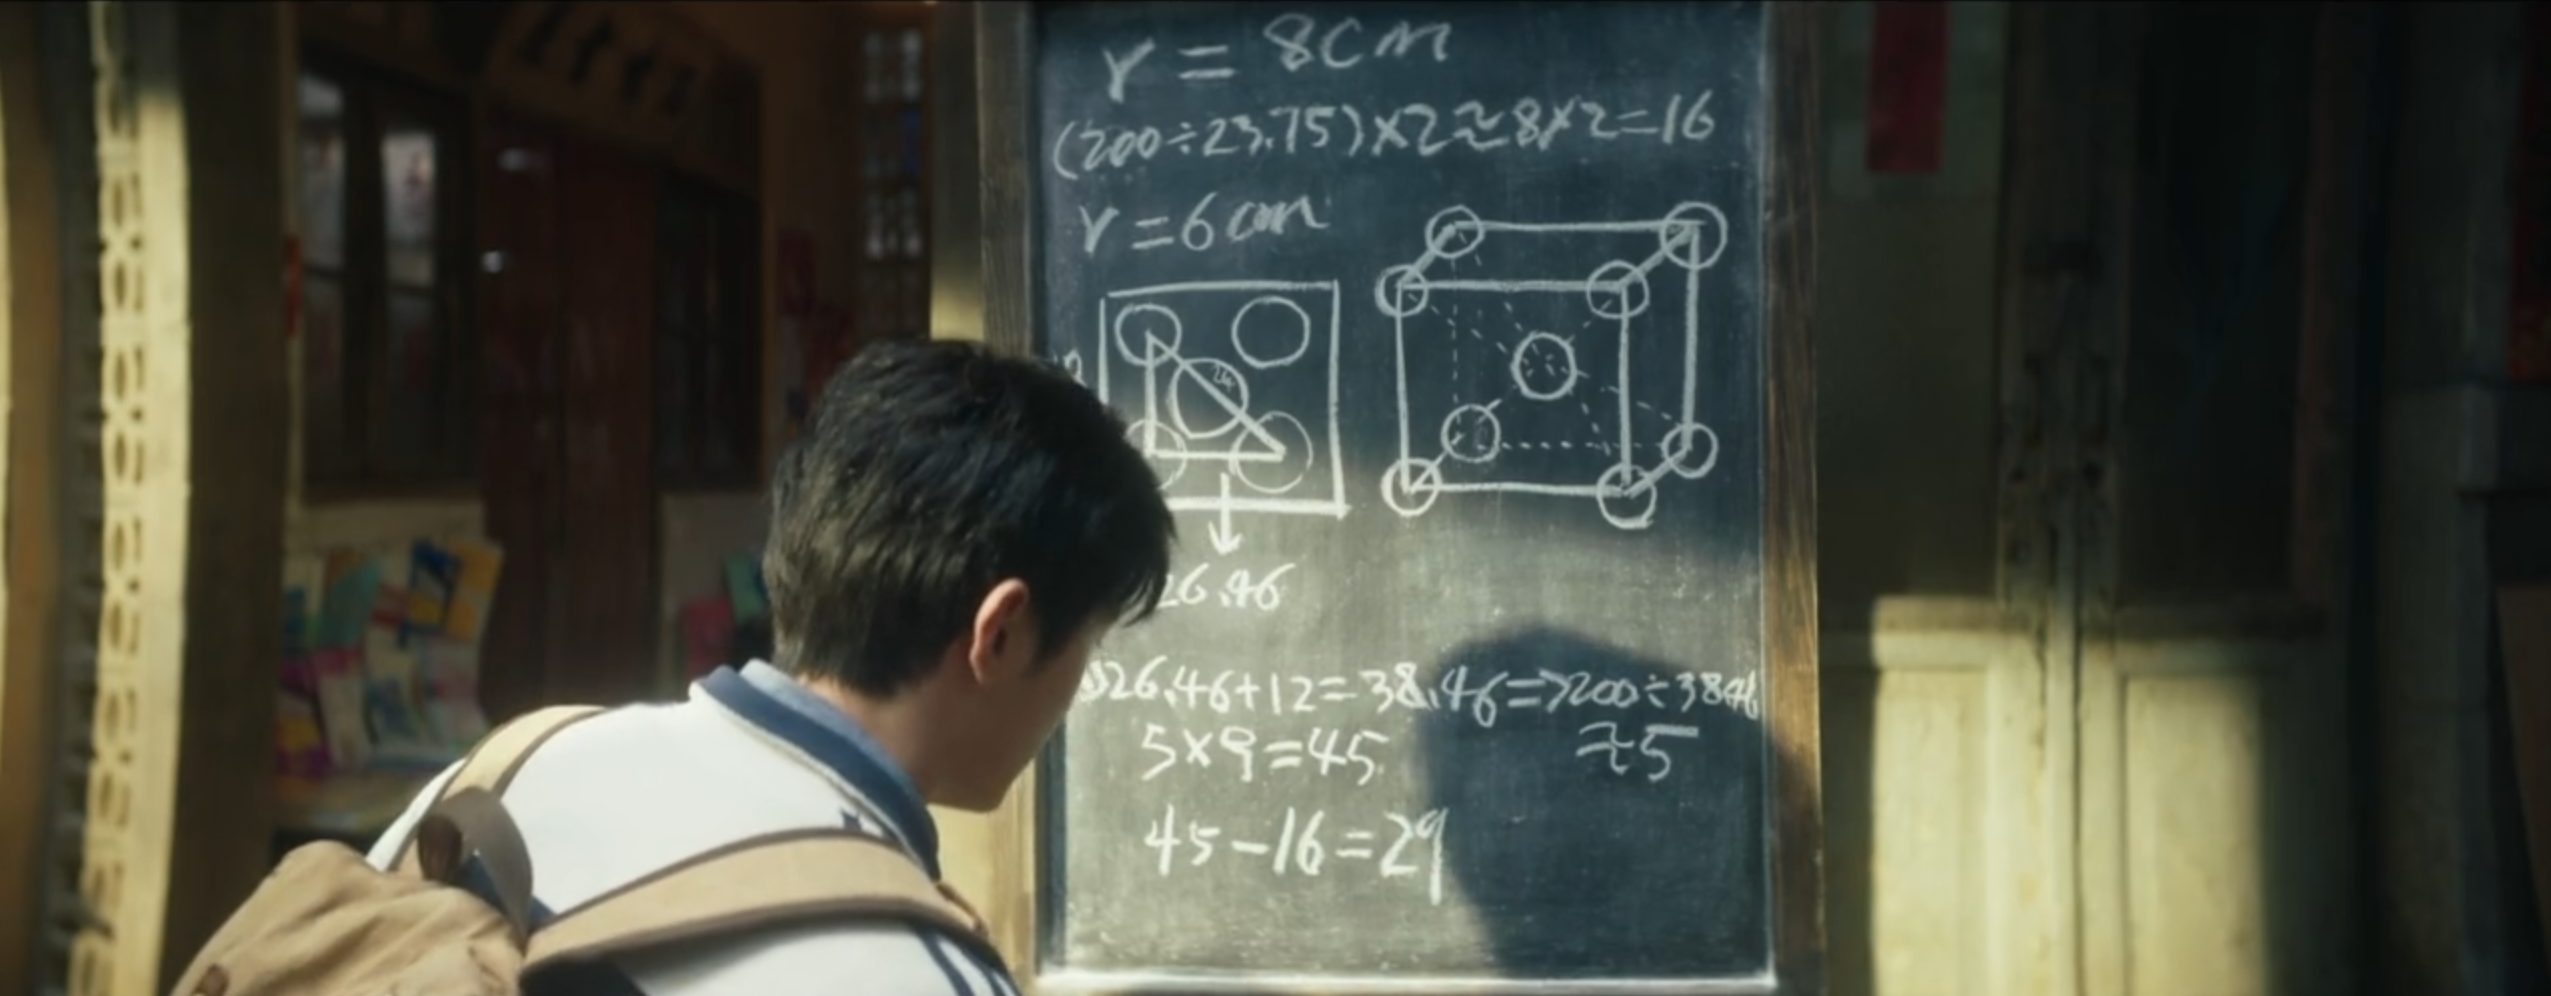 r = 8cm
(200÷23.75)×2≈8×2=16
r=6cm
26.46
26.46+12=38.46=>200÷38.46
≈5
5×9=45
45-16=29